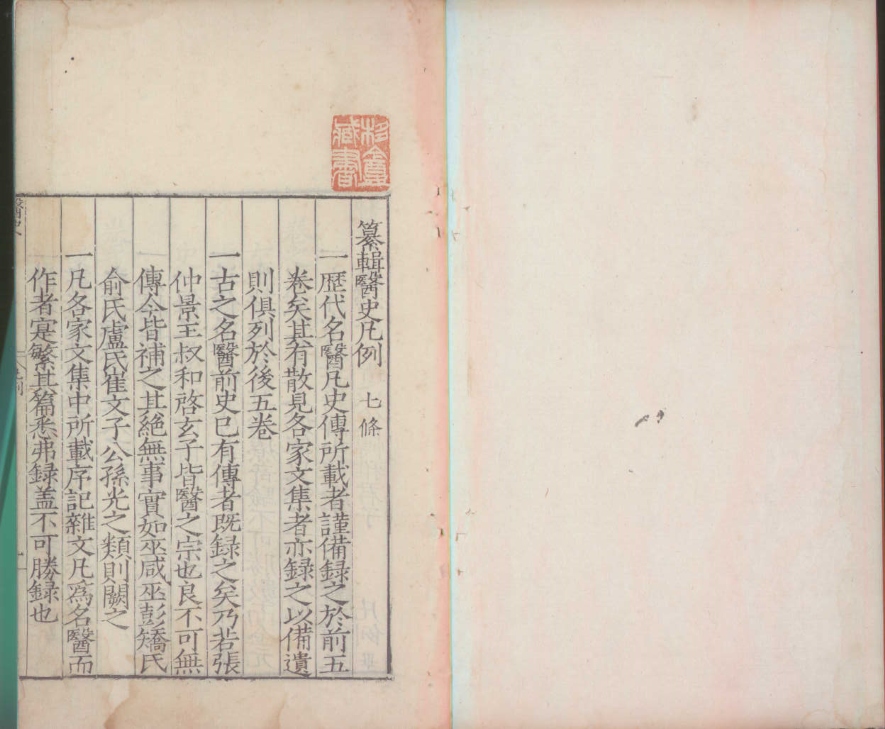 纂輯醫史凡例　七條
一歷代名醫凡史傳所載者謹備録之於前五
卷矣其有散見各家文集者亦録之以備遺
則俱列於後五卷
一古之名醫前史已有傳者既録之矣乃若張
仲景王叔和啓玄子皆醫之宗也良不可無
傳今皆補之其絶無事實如巫咸巫彭矯氏
俞氏盧氏崔文子公孫光之類則闕之
一凡各家文集中所載序記雜文凡爲名醫而
作者寔繁其篇悉弗録盖不可勝録也
醫史
藏書